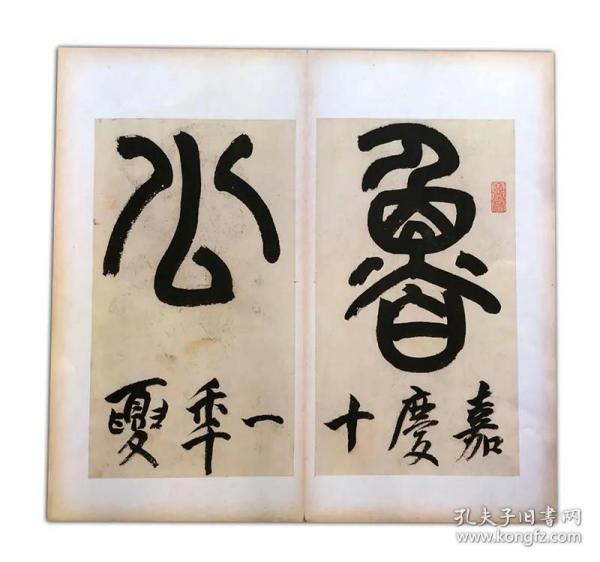 魯
嘉慶十
公
一秊夓
孔夫子旧書网
www.kongfz.com